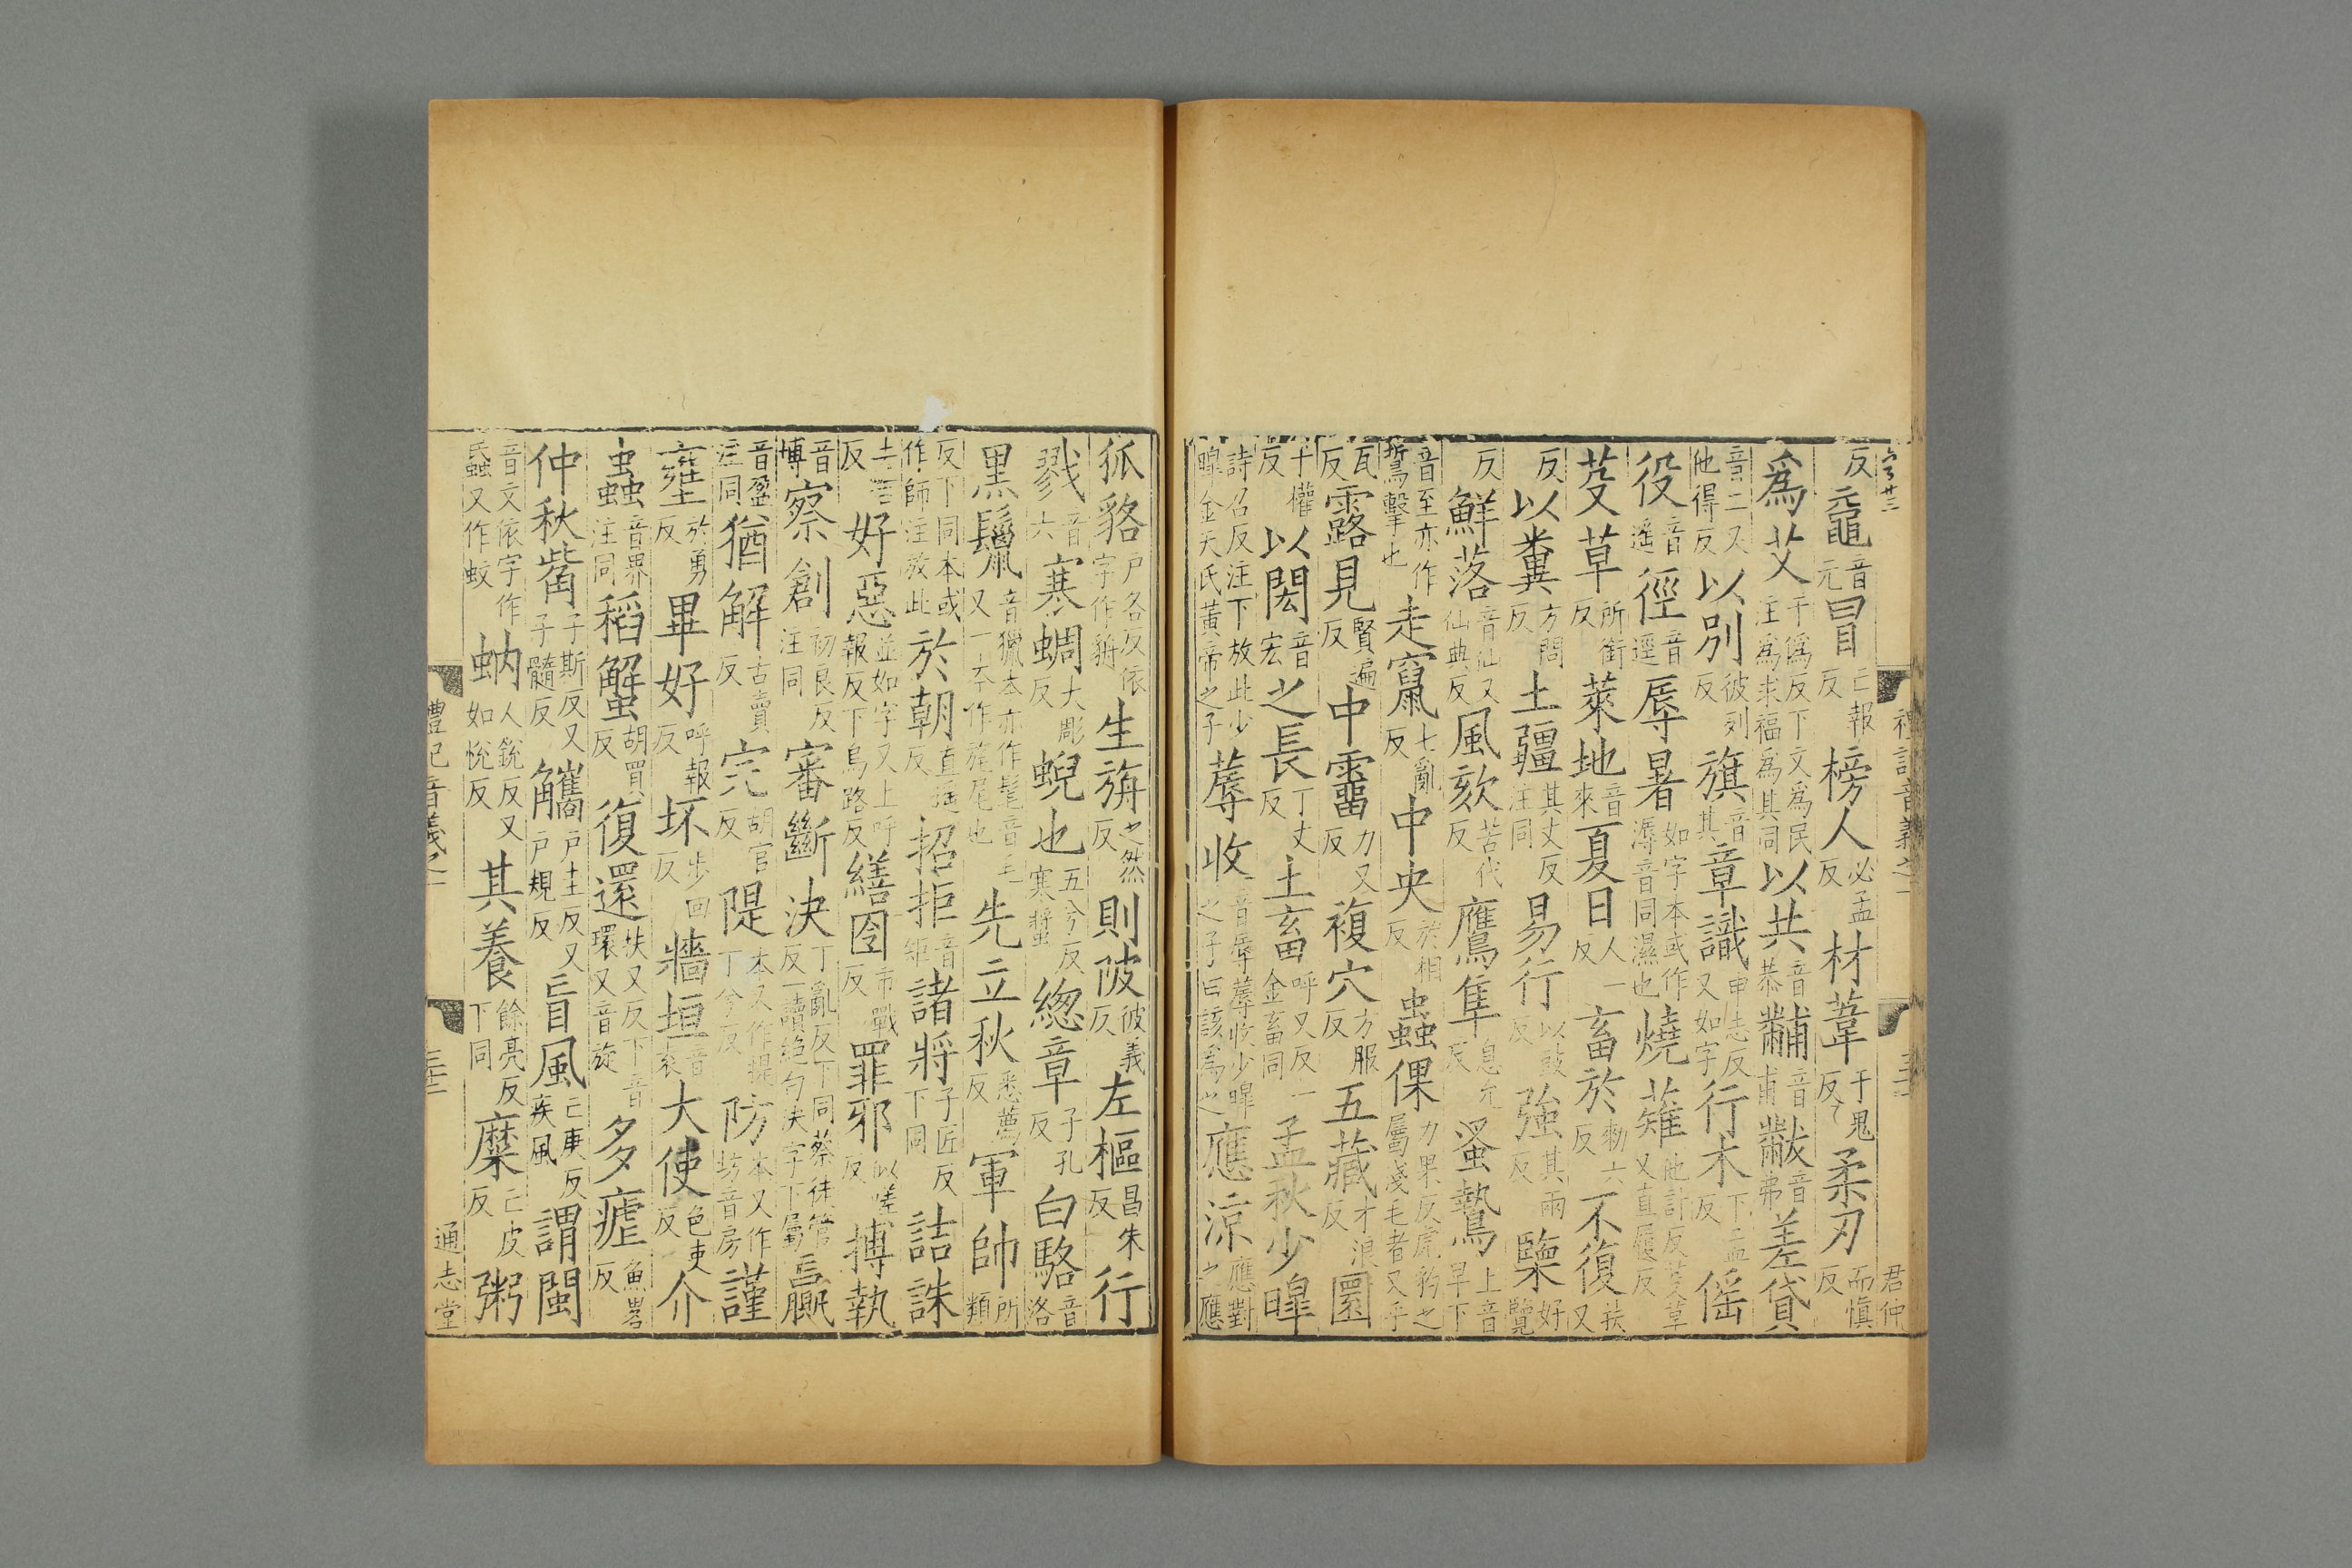 反黿音元冒亡報反榜人必孟反材葦于鬼反柔刃而慎反
爲艾于僞反下文爲民注爲求福爲其同以共音恭黼音甫黻音弗差貸
音二又他得反以別彼列反旗音其章識申志反又如字行木下孟反傜
役音遙徑音逕辱暑如字本或作溽音同濕也燒薙他計反芟草又直履反
芟草所銜反萊地音來夏日人一反畜於勑六反不復扶又
反以糞方問反土疆其丈反注同易行以豉反強其兩反㯺好覽
反鮮落音仙又仙典反風欬苦代反鷹隼息允反蚤鷙上音早下
音至亦作鷙擊也走竄七亂反中央於相反蟲倮力果反虎豹之屬淺毛者又乎
瓦反露見賢遍反中霤力又反複穴方服反五藏才浪反圜
于權反以閎音宏之長丁丈反土畜呼又反一金畜同孟秋少皞
詩召反注下放此少皞金天氏黃帝之子蓐收音辱蓐收少皞之子曰該爲之應涼應對之應
狐貉戶各反依字作貈生旃之然反則陂彼義反左樞昌朱反行
戮音六寒蜩大彫反蜺也五兮反寒螿緫章子孔反白駱音洛
黑鬛音獵本亦作髦音毛又一本作旄尾也先立秋悉薦反軍帥所類
反下同本或作師注放此於朝直遙反招拒音矩諸將子匠反下同詰誅
去吉反好惡並如字又上呼報反下烏路反繕囹市戰反罪邪似嗟反摶執
音博察創初良反注同審斷決丁亂反下同蔡徒管反一讀絶句決字下屬嬴
音盈注同猶解古賣反完胡官反隄本又作提丁兮反防本又作坊音房謹
壅於勇反畢好呼報反坏步回反牆垣音袁大使色吏反介
蟲音界注同稻蟹胡買反復還扶又反下音環又音旋多瘧魚畧反
仲秋觜子斯反又子髓反觿戶圭反又戶規反盲風亡庚反疾風謂閩
音文依字作䘇又作蚊蚋人銳反又如悅反其養餘亮反下同糜亡皮反粥
禮記音義之一
通志堂